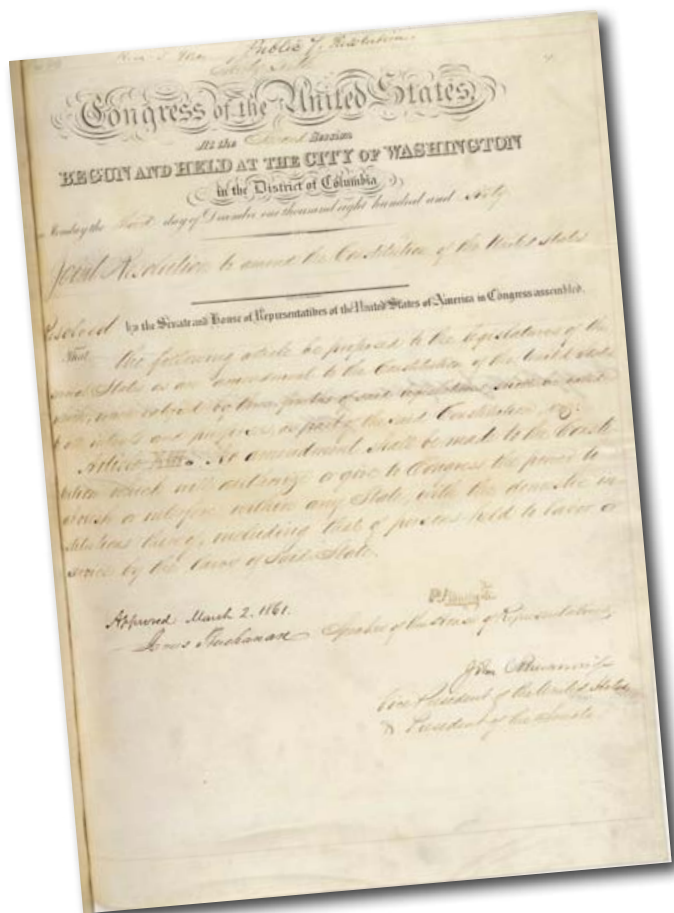 Public Resolution
Congress of the United States,
At the Second Session
BEGUN AND HELD AT THE CITY OF WASHINGTON
in the District of Columbia
Monday the third day of December one thousand eight hundred and sixty
Joint Resolution to amend the Constitution of the United States
Resolved by the Senate and House of Representatives of the United States of America in Congress assembled,
That the following article be proposed to the legislatures of the
several States as an amendment to the Constitution of the United States
which, when ratified by three fourths of said legislatures shall be valid
to all intents and purposes, as part of the said Constitution, viz:
Article XIII. No amendment shall be made to the Consti
tution which will authorize or give to Congress the power to
abolish or interfere within any State, with the domestic in
stitutions thereof, including that of persons held to labor or
service by the laws of said State.
Approved March 2. 1861.
James Buchanan
Speaker of the House of Representatives,
John C
Vice President of the United States,
& President of the Senate